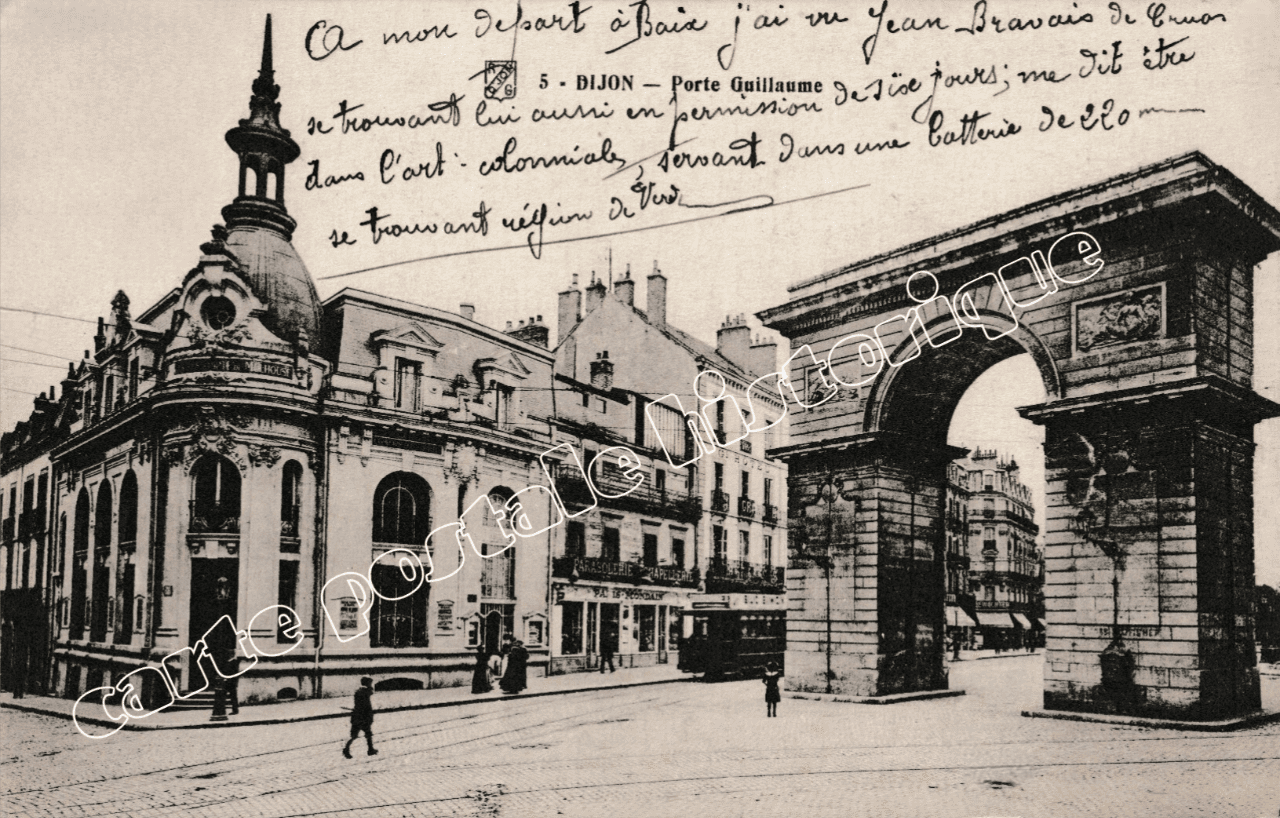 A mon depart à Baix j'ai vu Jean Bravais de Cruas
5 - DIJON — Porte Guillaume
se trouvant lui aussi en permission de six jours; me dit être
dans l'art. coloniale, servant dans une batterie de 220
se trouvant région de Verd
PARAPLUIE CHAPELLERIE
PARIS-MONDAIN
carte postale historique